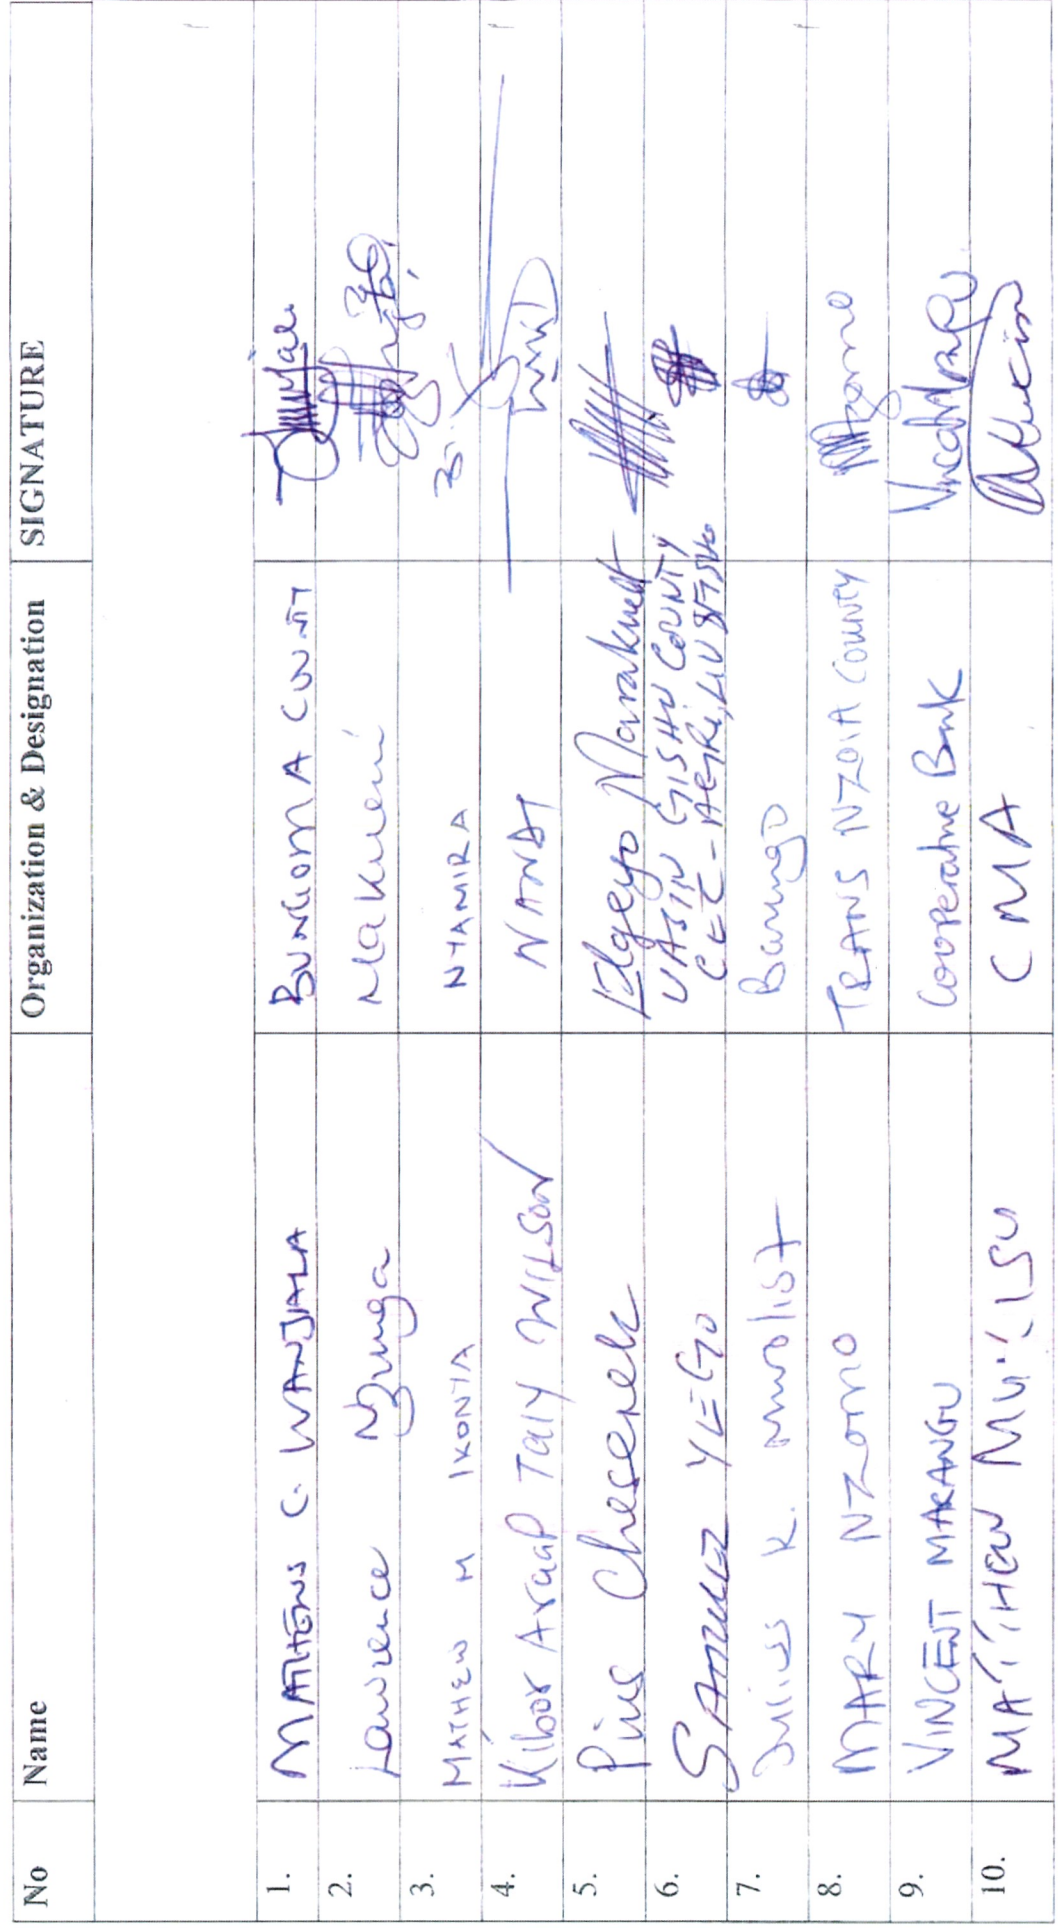 No Name Organization & Designation SIGNATURE
1. MATHEWS C. WANJALA BUNGOMA COUNTY
2. Lawrence Nzunga Makueni
3. MATHEW M IKONYA NYAMIRA
4. Kiboor Araap Taiy WILSON NANDI
5. Pius Cheserek Elgeyo Marakwet
6. SAMUEL YEGO UASIN GISHU COUNTY
CEC - AGRI, LIV &
7. Julius K. Baringo
8. MARY NZOMO TRANS NZOIA COUNTY
9. VINCENT MARANGU Cooperative Bank
10. MATTHEW CMA